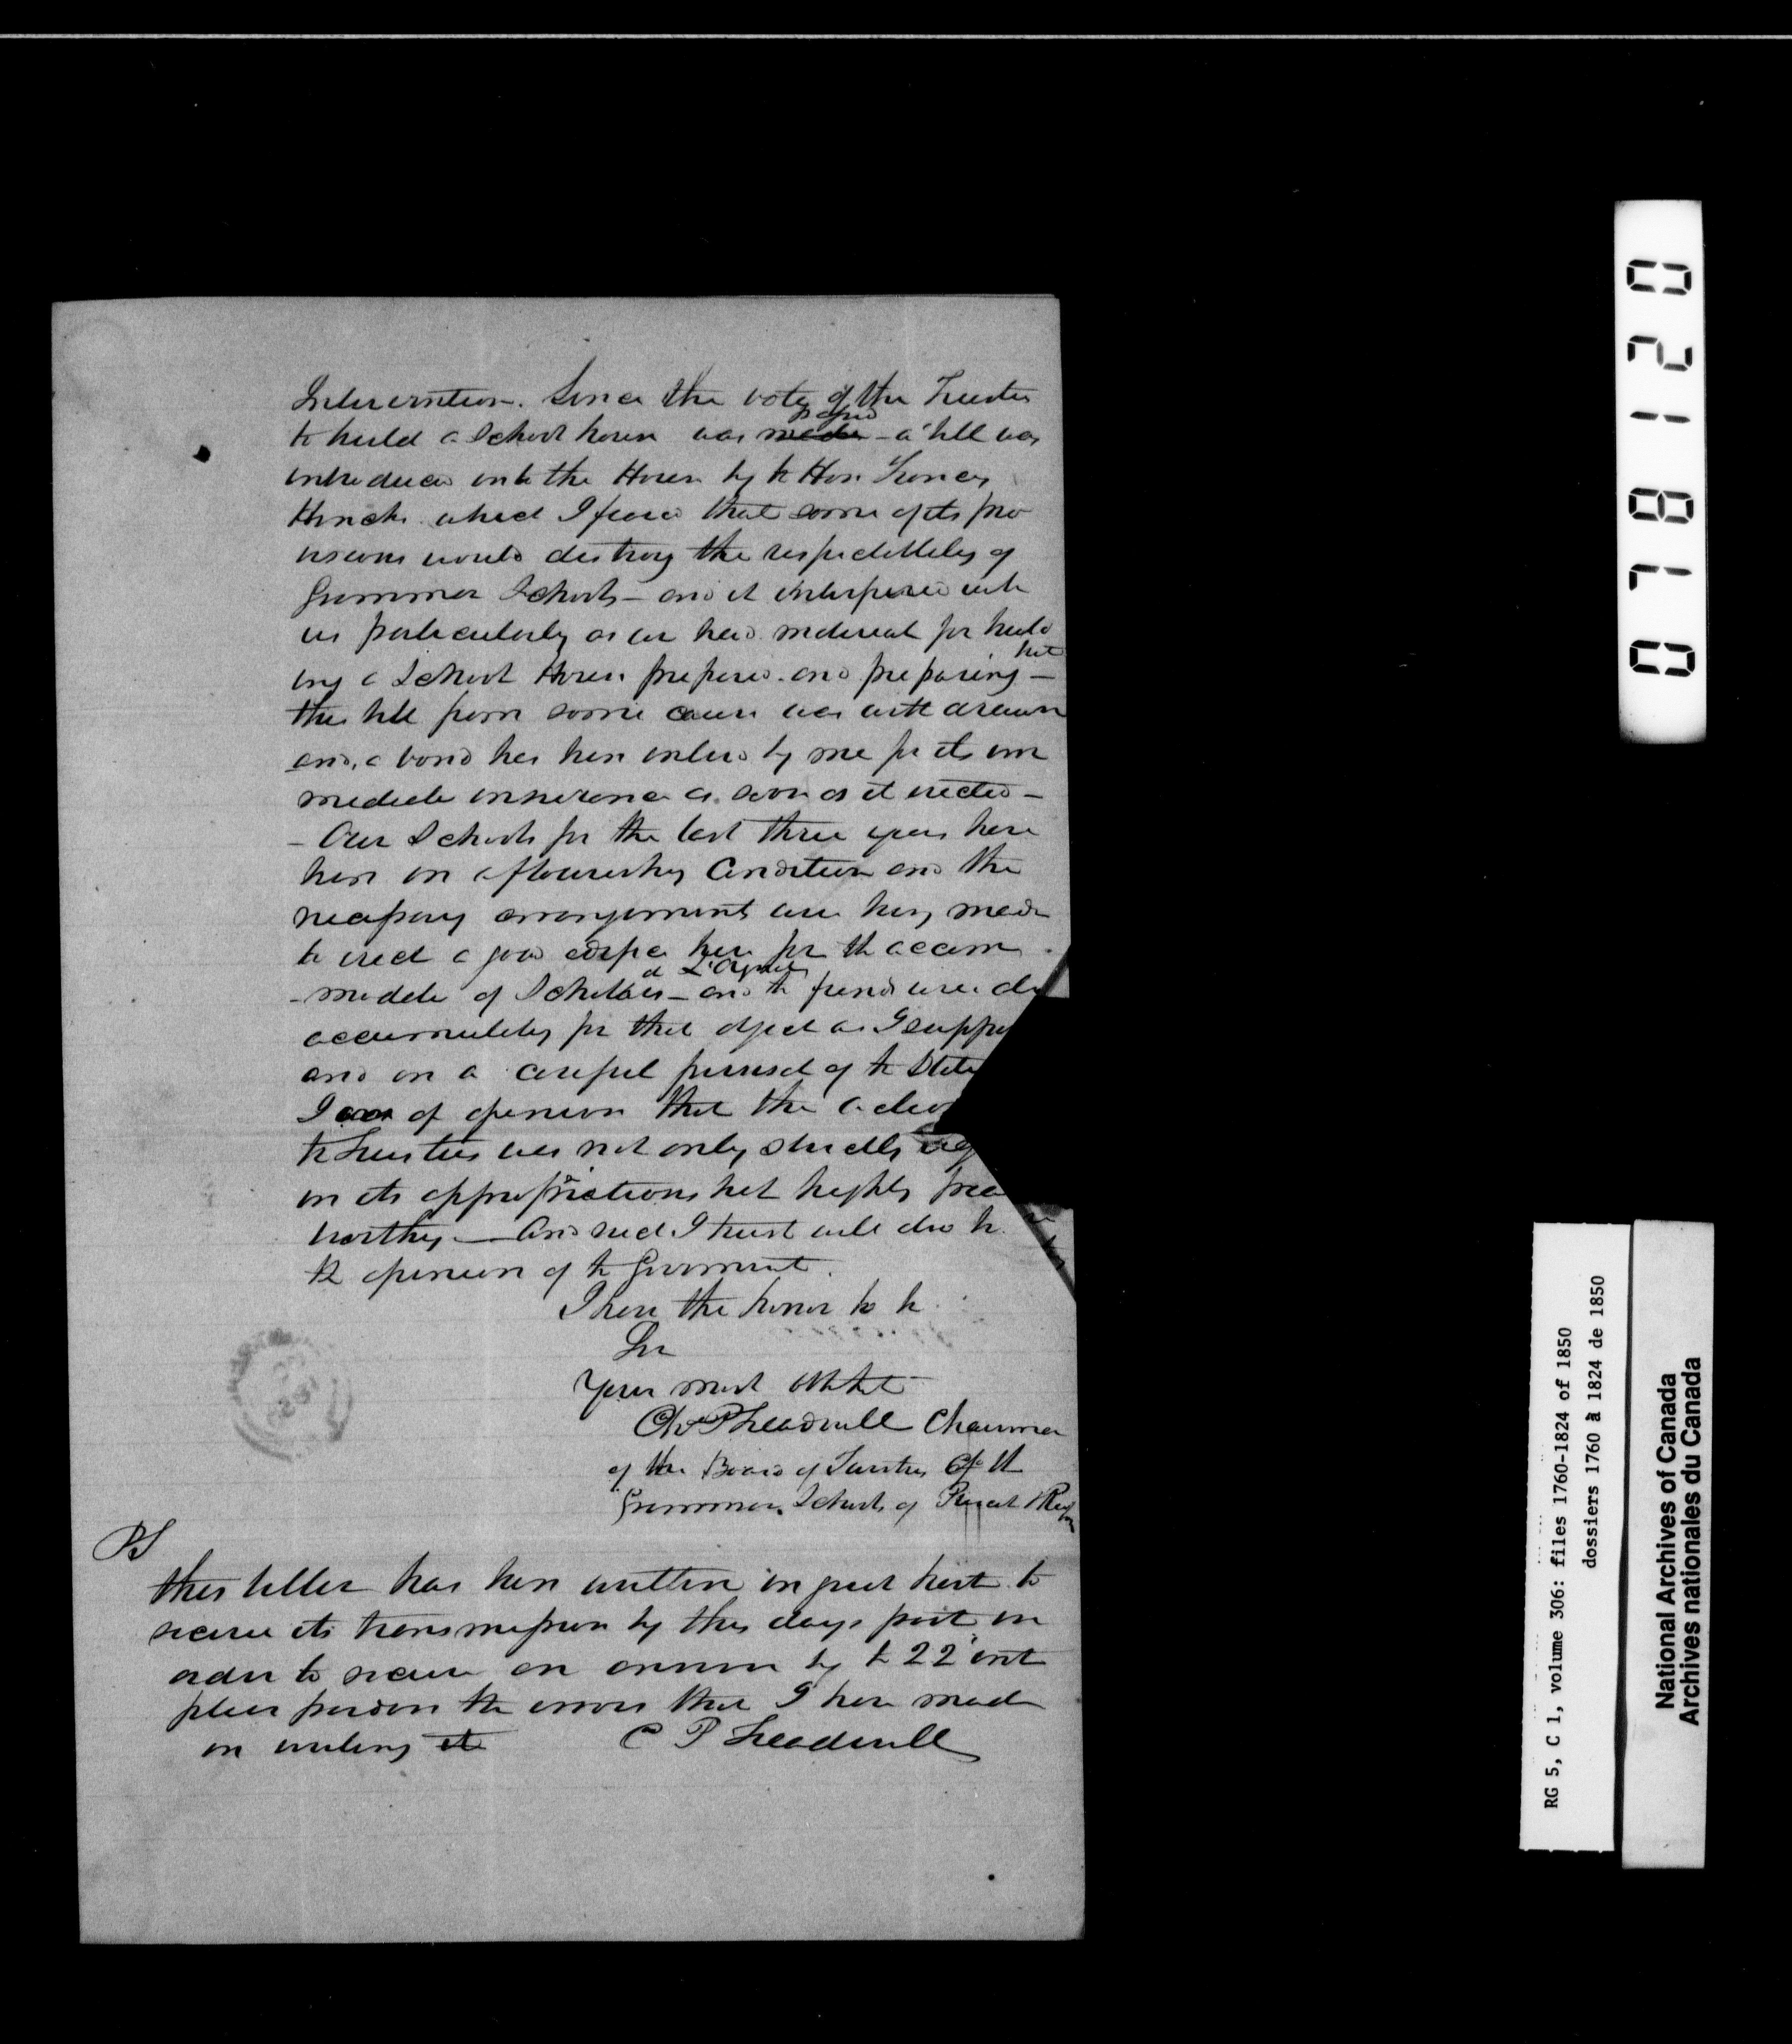 Intervention. Since the vote of the Trustees
passed
to build a School house was made - a bill was
introduced into the House by the Hon. Francis
Hincks which I feared that some of its pro
visions would destroy the respectability of
Grammar Schools - and it interfered with
us particularly as we had material for build
but
ing a School House prepared and preparing -
this bill from some cause was withdrawn
and a bond has been entered by me for its im
mediate insurance as soon as it erected -
- Our Schools for the last three years have
been in a flourishing Condition and the
necessary arrangements are being made
to erect a good edifice here for the accom
at L'Orignal
- modate of Scholars - and the funds were
accumulating for that object as I
and on a careful perusal of the
I am of opinion that the
the Trustees was not only strictly
in its appropriations but highly
worthy - and such I trust will also be
the opinion of the Government.
I have the honor to be
Sir
Your most Obt
Chs P Treadwell Chairman
of the Board of Trustees of the
Grammar Schools of Prescott & Russell
PS
this letter has been written in great haste to
secure its transmission by this days post in
order to secure an answer by the 22 inst
please pardon the errors that I have made
in writing it C P Treadwell
07812 0
RG 5, C 1, volume 306: files 1760-1824 of 1850
dossiers 1760 à 1824 de 1850
National Archives of Canada
Archives nationales du Canada